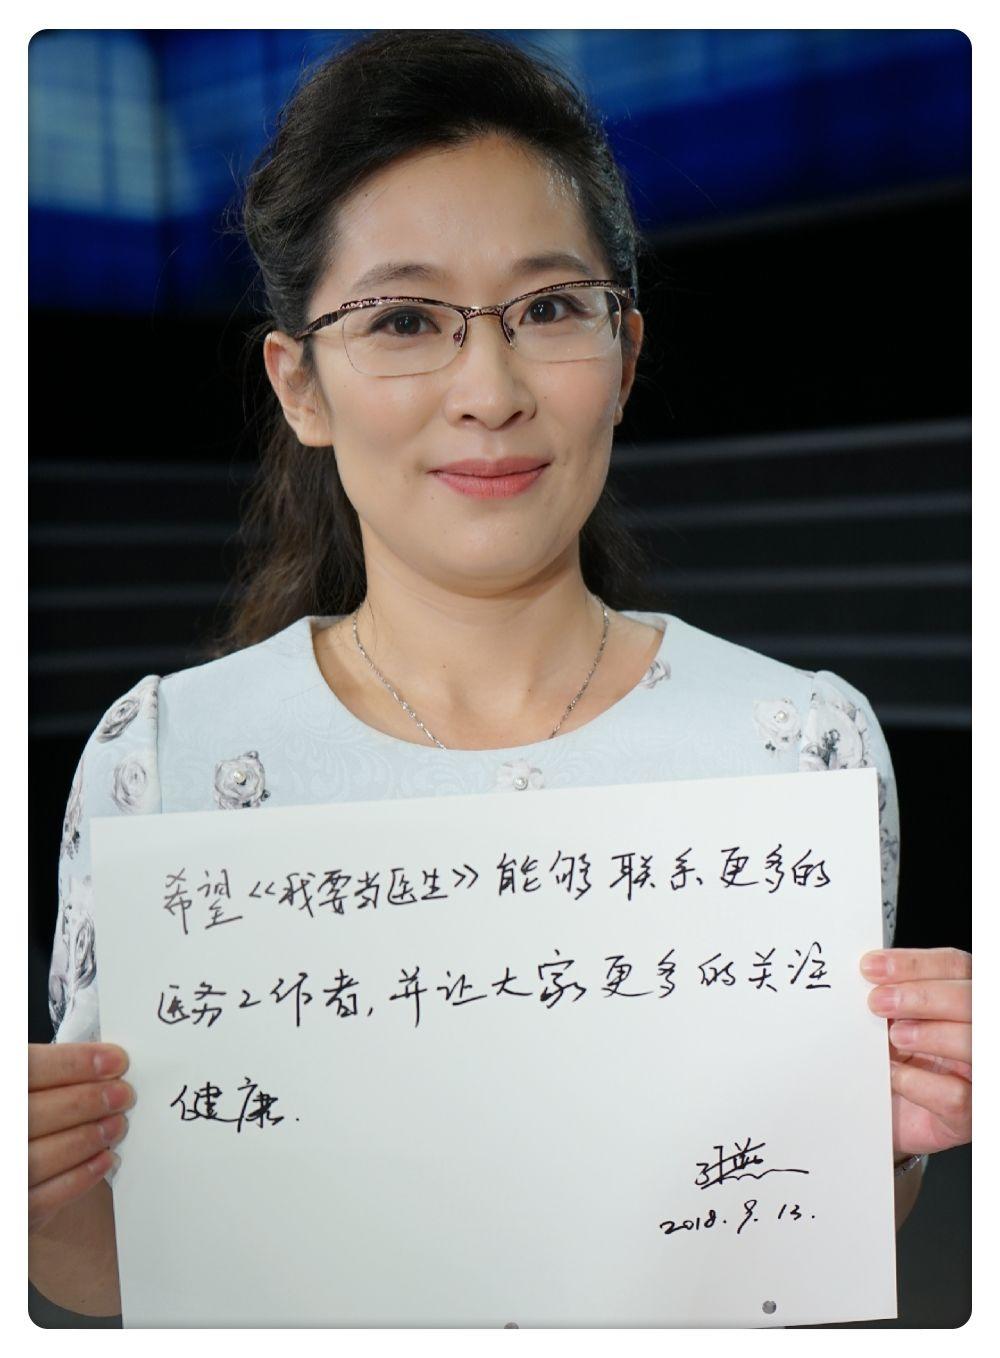 希望《我要当医生》能够联系更多的
医务工作者,并让大家更多的关注
健康.
2018.9.13.